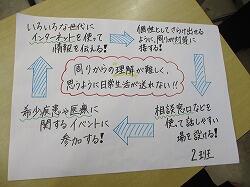 いろいろな世代に
インターネットを使って
情報を伝える!
個性としてさらけ出せる
ように、周りが対等に
接する!
周りからの理解が難しく、
思うように日常生活が送れない!!
希少疾患や医療に
関するイベントに
参加する!
相談窓口などを
使って話しやすい
場を設ける!
2班